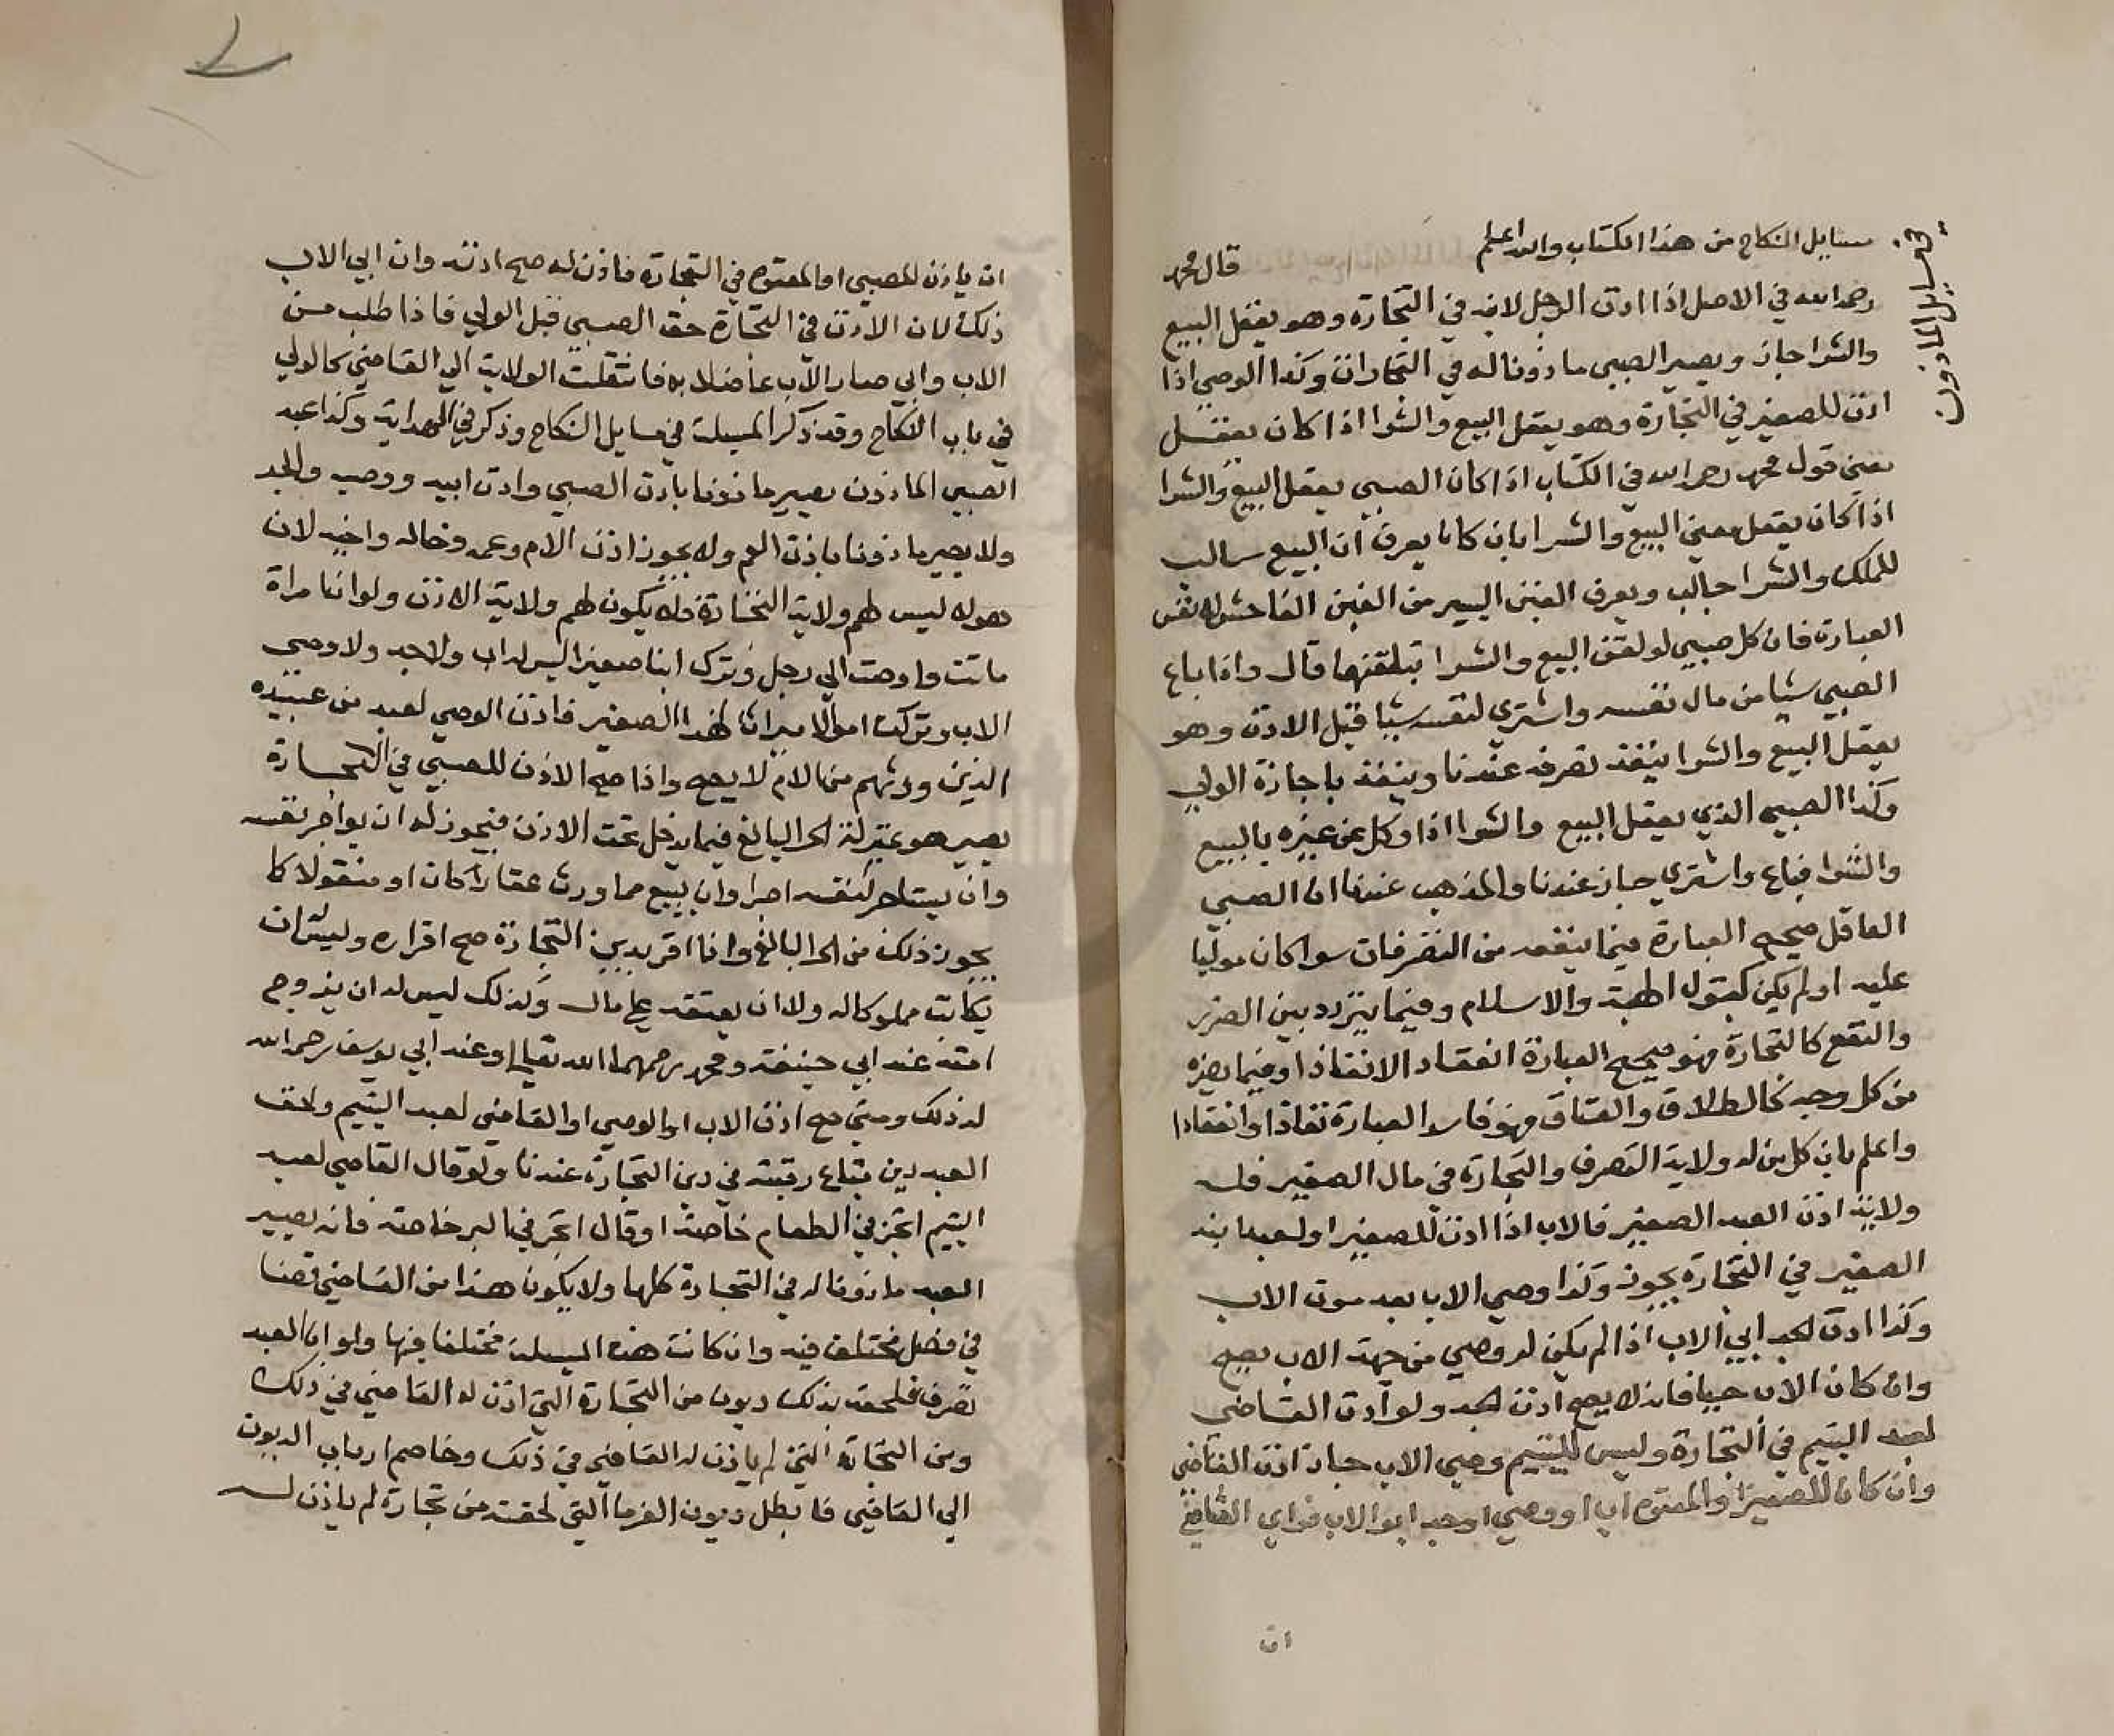 مسايل النكاح من هذا الكتاب والله اعلم قال محمد
في مسايل الماذون
رحمه الله في الاصل اذا اذن الرجل لابنه في التجارة وهو يعقل البيع
والشرا جاز ويصير الصبي ماذونا له في التجارات وكذا الوصي اذا
اذن للصغير في التجارة وهو يعقل البيع والشرا اذا كان يعقل
معنى قول محمد رحمه الله في الكتاب اذا كان الصبي يعقل البيع والشرا
اذا كان يعقل معنى البيع والشرا بان كان يعرف ان البيع سالب
للملك والشرا جالب ويعرف الغبن اليسير من الغبن الفاحش لا نفس
العبارة فان كل صبي لو لقن البيع والشرا تبلقنهما قال واذا باع
الصبي شيا من مال نفسه واشتري لنفسه شيا قبل الاذن وهو
يعقل البيع والشرا ينعقد تصرفه عندنا وينفذ باجازة الولي
وكذا الصبي الذي يعقل البيع والشرا اذا وكل عن غيره بالبيع
والشرا فباع واشتري جاز عندنا والمذهب عندنا ان الصبي
العاقل صحيح العبارة فيما ينفعه من التصرفات سوا كان موليا
عليه او لم يكن كقبول الهبة والاسلام وفيما يتردد بين الضرر
والنفع كالتجارة فهو صحيح العبارة انعقاد الانفاذا وفيما يضره
من كل وجه كالطلاق والعتاق فهو فاسد العبارة نفاذا وانعقادا
واعلم بان كل من له ولاية التصرف والتجارة في مال الصغير فله
ولاية اذن العبد الصغير فالاب اذا اذن للصغير او لعبد ابنه
الصغير في التجارة يجوز وكذا وصي الاب بعد موت الاب
وكذا اذن الجد ابي الاب اذا لم يكن له وصي من جهة الاب يصح
وان كان الاب حيا فانه لا يصح اذن الجد ولو اذن القاضي
لعبد اليتيم في التجارة وليس لليتيم وصي الاب جاز اذن القاضي
وان كان للصغير او المعتوه اب او وصي او جد ابو الاب فراي القاضي
ان
ان ياذن للصبي او المعتوه في التجارة فاذن له صح اذنه وان ابي الاب
ذلك لان الاذن في التجارة حق الصبي قبل الولي فاذا طلب من
الاب وابي صار الاب عاضلا به فانتقلت الولاية الي القاضي كالولي
في باب النكاح وقد ذكر المسيلة في مسايل النكاح وذكر في الهداية وكذا عبد
الصبي الماذون يصير ماذونا باذن الصبي واذن ابيه ووصيه والجد
ولا يصير ماذونا باذن العم ولا يجوز اذن الام وعمه وخاله واخيه لان
هولا ليس لهم ولاية التجارة فلا يكون لهم ولاية الاذن ولو ان امراة
ماتت واوصت الي رجل وترك ابنا صغيرا ليس له اب ولا جد ولا وصي
الاب وتركت اموالا ميراثا لهذا الصغير فاذن الوصي لعبد من عبيده
الذين ورثهم من الام لا يصح واذا صح الاذن للصبي في التجارة
يصير هو بمنزلة الحر البالغ فيما يدخل تحت الاذن فيجوز له ان يواجر نفسه
وان يستاجر لنفسه اجرا وان يبيع مما ورث عقارا كان او منقولا كما
يجوز ذلك من الحر البالغ واذا اقر بدين التجارة صح اقراره وليس له ان
يكاتب مملوكا له ولا ان يعتقه علي مال وكذلك ليس له ان يزوج
امته عند ابي حنيفة ومحمد رحمهما الله تعالي وعند ابي يوسف رحمه الله
له ذلك ومتي صح اذن الاب او الوصي او القاضي لعبد اليتيم ولحق
العبد دين يباع رقبته في دين التجارة عندنا ولو قال القاضي لعبد
اليتيم اتجر في الطعام خاصة او قال اتجر في البر خاصة فانه يصير
العبد ماذونا له في التجارة كلها ولا يكون هذا من القاضي قضا
في فصل مختلف فيه وان كانت هذه المسيلة مختلفا فيها ولو ان العبد
تصرف فلحقه بذلك ديون من التجارة التي اذن له القاضي في ذلك
ومن التجارة التي لم ياذن له القاضي في ذلك وخاصم ارباب الديون
الي القاضي فابطل ديون الغرما التي لحقته من تجارة لم ياذن له